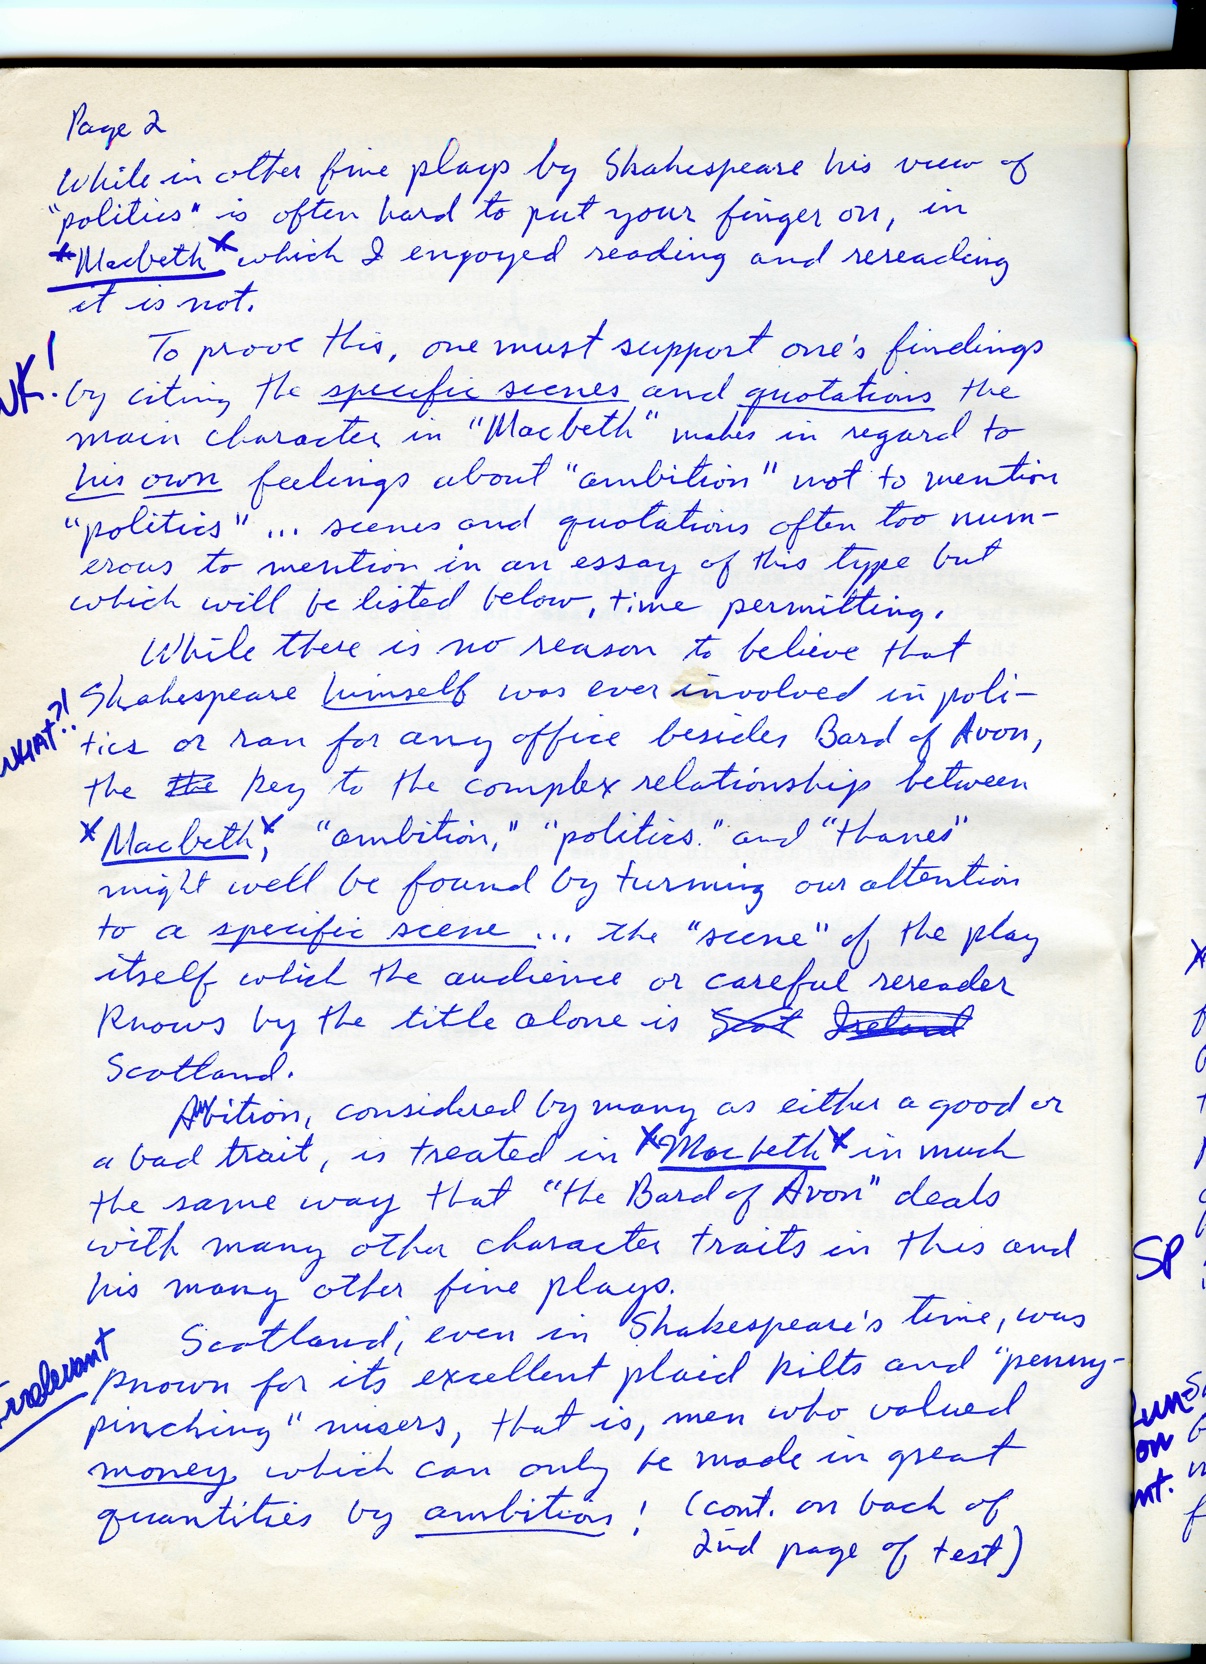 Page 2
While in other fine plays by Shakespeare his view of
"politics" is often hard to put your finger on, in
*Macbeth* which I enjoyed reading and rereading
it is not.
To prove this, one must support one's findings
by citing the specific scenes and quotations the
main character in "Macbeth" makes in regard to
his own feelings about "ambition" not to mention
"politics" ... scenes and quotations often too num-
erous to mention in an essay of this type but
which will be listed below, time permitting.
While there is no reason to believe that
WHAT?!
Shakespeare himself was ever involved in poli-
tics or ran for any office besides Bard of Avon,
the the key to the complex relationship between
*Macbeth*, "ambition," "politics." and "thanes"
might well be found by turning our attention
to a specific scene ... the "scene" of the play
itself which the audience or careful rereader
knows by the title alone is Scot Ireland
Scotland.
Ambition, considered by many as either a good or
a bad trait, is treated in *Macbeth* in much
the same way that "the Bard of Avon" deals
with many other character traits in this and
his many other fine plays.
Irrelevant
Scotland, even in Shakespeare's time, was
known for its excellent plaid kilts and "penny-
pinching" misers, that is, men who valued
money which can only be made in great
quantities by ambition! (cont. on back of
2nd page of test)
SP
on